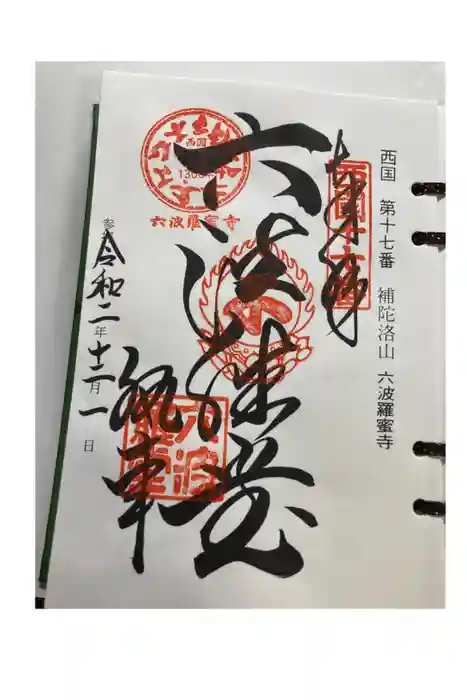 西国 第十七番 補陀洛山 六波羅蜜寺
奉拝
西国十七番
六波羅堂
西国
1300年
六波羅蜜寺
執事
令和二年十二月一日